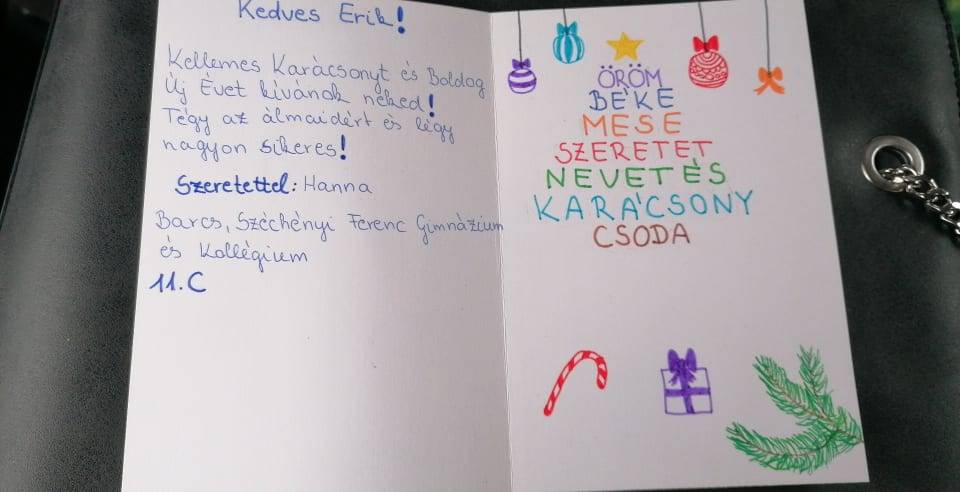 Kedves Erik!
Kellemes Karácsonyt és Boldog
Új Évet kívánok neked!
Tégy az álmaidért és légy
nagyon sikeres!
Szeretettel: Hanna
Barcs, Széchényi Ferenc Gimnázium
és Kollégium
11.C
ÖRÖM
BÉKE
MESE
SZERETET
NEVETÉS
KARÁCSONY
CSODA